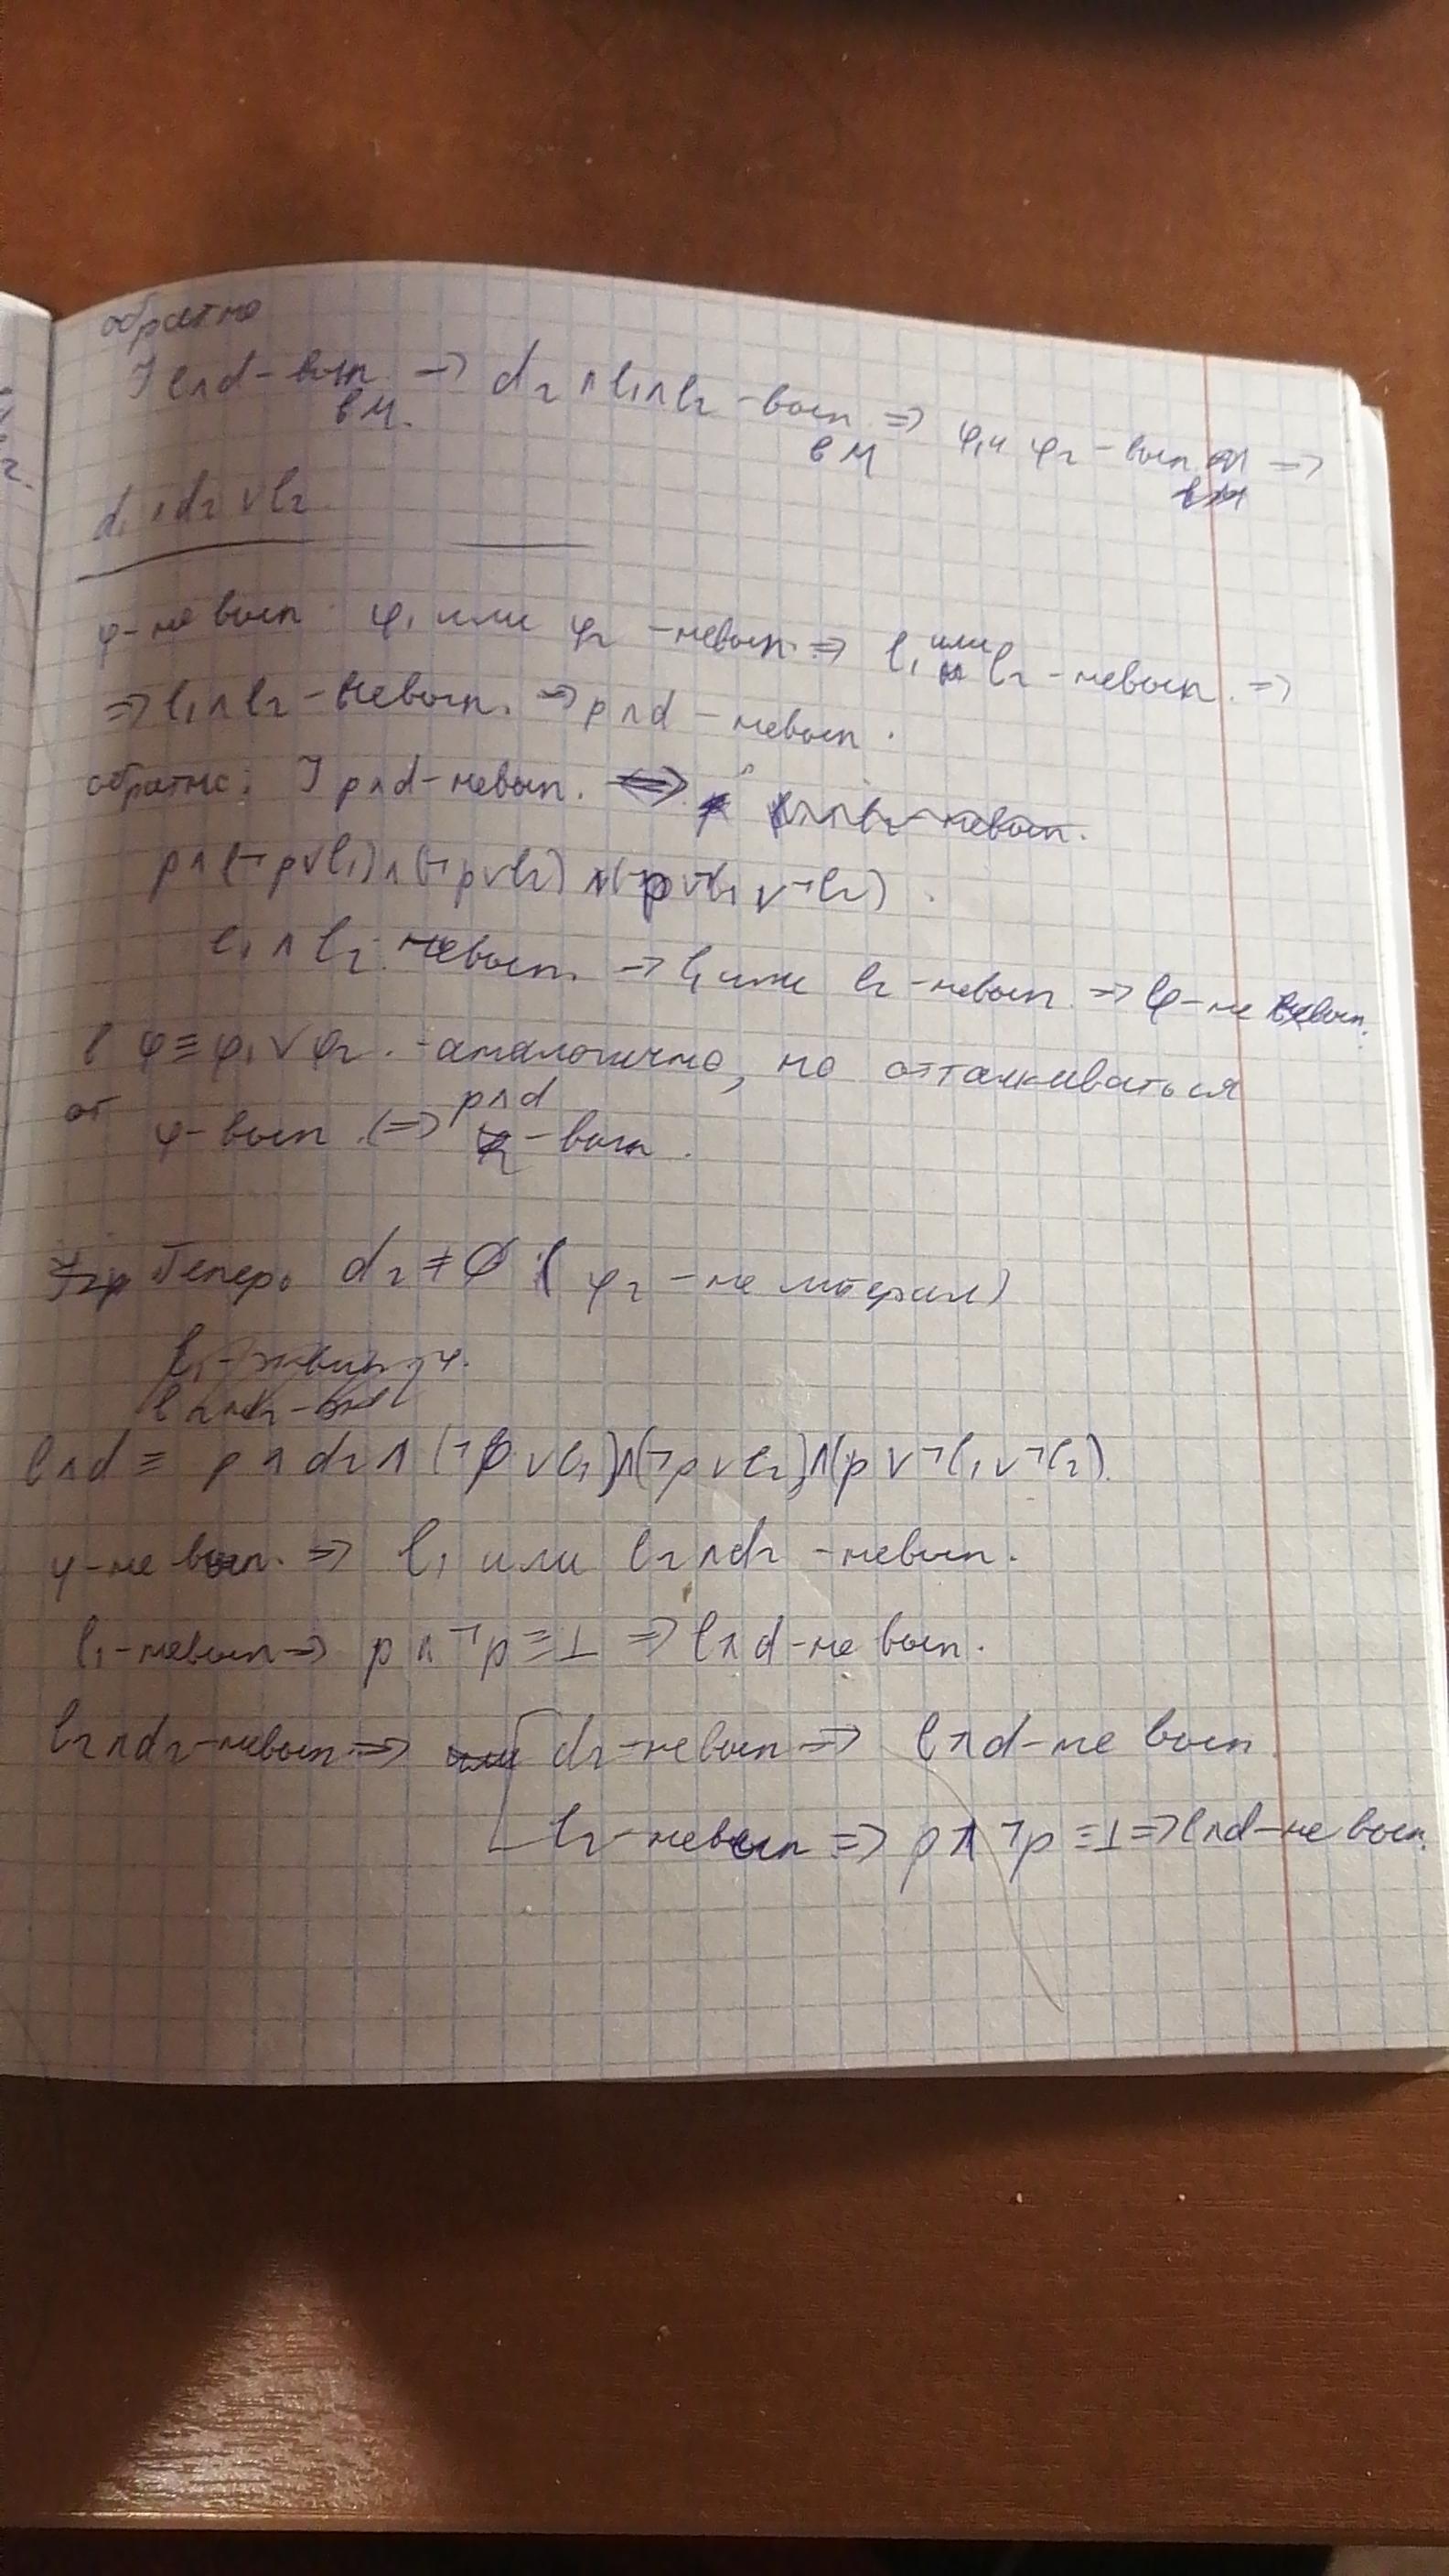 обратно
] l∧d - вып. в M. → d₂∧l₁∧l₂ - вып в M ⇒ φ₁ и φ₂ - вып. ⇒
d₁∧d₂∨l₂
φ - не вып φ₁ или φ₂ - невып. ⇒ l₁ или l₂ - невып. ⇒
⇒ l₁∧l₂ - невып. ⇒ p∧d - невып.
обратно: ] p∧d - невып.
p∧(¬p∨l₁)∧(¬p∨l₂)∧(¬p∨¬l₁∨¬l₂).
l₁∧l₂ невып. → l₁ или l₂ - невып. ⇒ φ - не вып.
φ≡φ₁∨φ₂. - аналогично, но отталкиваться
от φ - вып. ⇔ p∧d - вып.
Теперь d₂≠∅ (φ₂ - не литерал)
l∧d ≡ p∧d₂∧(¬p∨l₁)∧(¬p∨l₂)∧(p∨¬l₁∨¬l₂).
φ - не вып. ⇒ l₁ или l₂∧d₂ - невып.
l₁ - невып ⇒ p∧¬p≡⊥ ⇒ l∧d - не вып.
l₂∧d₂ - невып ⇒ [ d₂ - невып ⇒ l∧d - не вып.
l₂ - невып ⇒ p∧¬p≡⊥ ⇒ l∧d - не вып.